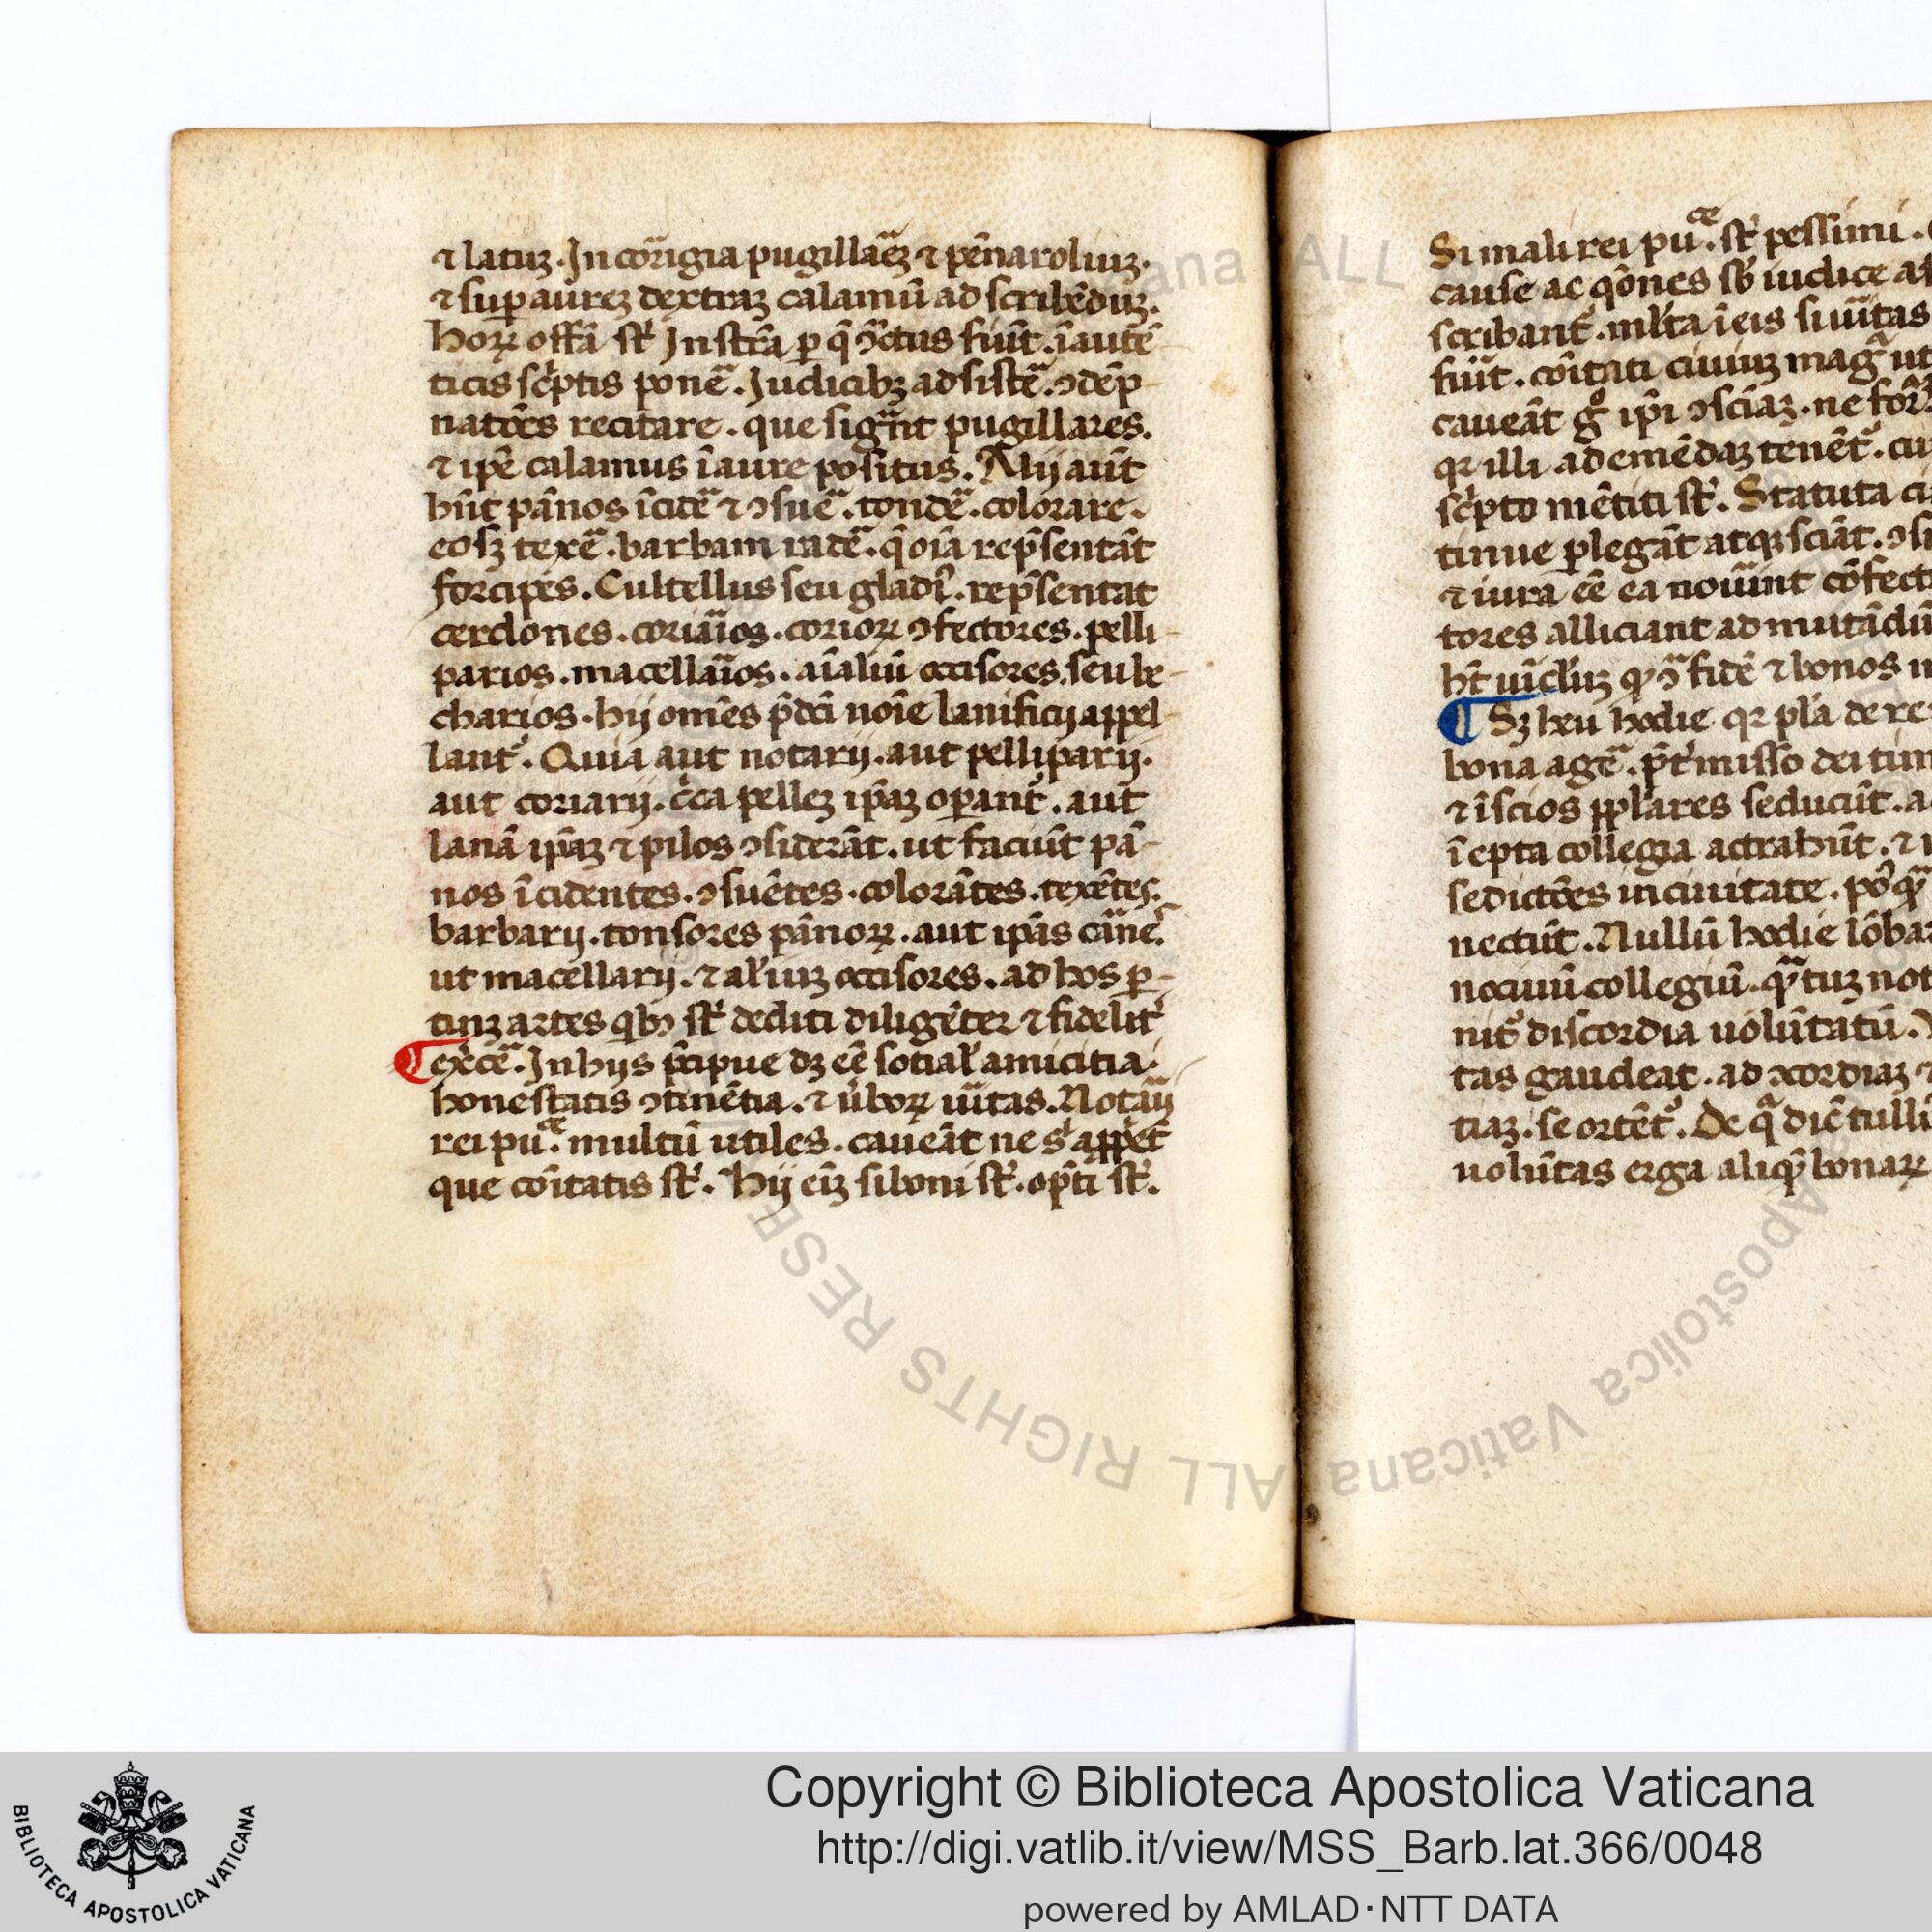 ⁊ latuꝫ. In corrigia pugillaꝝ ⁊ pēnaroliuꝫ.
⁊ suꝑ aureꝫ dextraꝫ calamū ad scribēduꝫ.
hoꝝ offā st̄ Instrā ꝑ q̄ ꝯctus fiūt. ī autē
ticis sc̄ptis ponē. Iudicibꝫ adsistē. ꝯdēp
natōes recitare. que signt pugillares.
⁊ ipē calamus ī aure positus. Alij aūt
hn̄t pānos īcidē ⁊ ꝯsuē. tondē. colorare.
eosꝫ texē. barbam radē. q̄ oīa rep̄sentāt
forcipes. Cultellus seu gladi᷒. rep̄sentat
cerdones. coriaios. corioꝝ ꝯfectores. pelli
parios. macellaios. aīaliū occisores. seu be
charios. hij omēs p̄dc̄i noīe lanificij appel
lant᷒. Quia aut notarij. aut pelliparij.
aut coriarij. c̄ca pelleꝫ ip̄aꝫ oꝑant᷒. aut
lanā ip̄aꝫ ⁊ pilos ꝯsiderāt. ut faciūt pā
nos īcidentes. ꝯsuētes. colorātes. texētes.
barbarij. tonsores pānoꝝ. aut ipās carne᷒.
ut macellarij. ⁊ al'iuꝫ occisores. ad hos ꝑ
tinꝫ artes qbꝫ st̄ dediti diligēter ⁊ fidelit᷒
exc̄ē. In hijs p̄cipue dꝫ eē sotial' amicitia.
honestatis ꝯtinētia. ⁊ ūboꝝ ūitas. Notaij
rei puce. multū utiles. caveāt ne s' appet᷒
que cōitatis st̄. Hij eīꝫ si boni st̄. op̄ti st̄.
Si mali rei puce. st̄ pessimi.
cause ac qōnes sb̄ iudice
scribant᷒. ml'ta ī eis si ūitas
fiūt. cōitati civiuꝫ mag
caveāt go ip̄i ꝯsciaꝫ. ne
qꝛ illi ad emēdaꝫ tenēt᷒.
sc̄pto mētiti st̄. Statuta
tinue ꝑlegāt atqꝫ sciāt.
⁊ iura eē ea noverint
tores alliciant ad mutādū
hn̄t vīcl'uꝫ fidē ⁊ bonos
Sꝫ heu hodie qꝛ pl'a de
bona agē. p̄t᷒misso dei
⁊ īscios ppl'ares seducūt.
ī epta collegia actrahūt. ⁊
seditōes in civitate.
nectūt. Nullū hodie
nocivū collegiū. q̄tuꝫ
nit᷒ discordia volūtatū.
tas gaudeat. ad ꝯcordiaꝫ
tiaꝫ. se ortēt᷒. De q̄ dic̄
volūtas erga aliq̄ bonaꝝ
BIBLIOTECA APOSTOLICA VATICANA
Copyright © Biblioteca Apostolica Vaticana
http://digi.vatlib.it/view/MSS_Barb.lat.366/0048
powered by AMLAD·NTT DATA